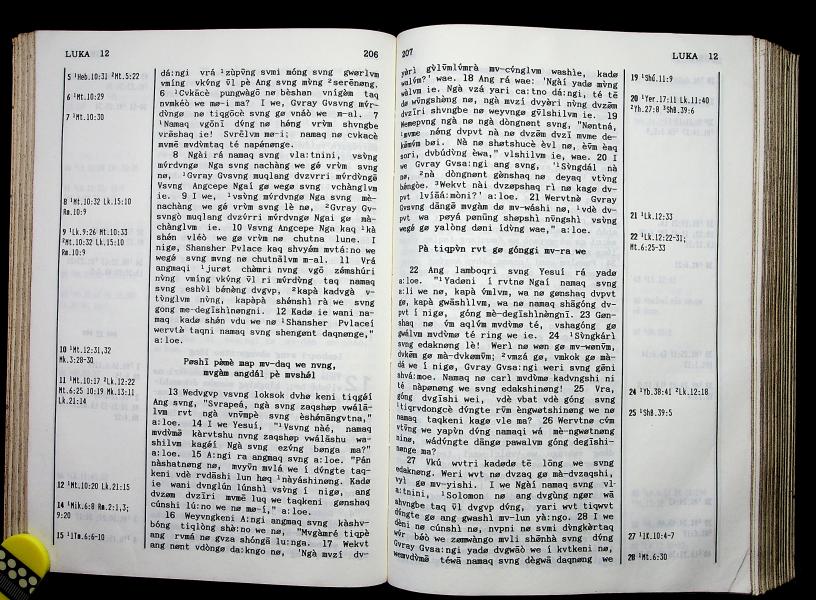 LUKA 12
206
5 ¹Heb.10:31 ²Mt.5:22
6 ¹Mt.10:29
7 ¹Mt.10:30
8 ¹Mt.10:32 Lk.15:10
Rm.10:9
9 ¹Lk.9:26 Mt.10:33
²Mt.10:32 Lk.15:10
Rm.10:9
10 ¹Mt.12:31,32
Mk.3:28-30
11 ¹Mt.10:17 ²Lk.12:22
Mt.6:25 10:19 Mk.13:11
Lk.21:14
12 ¹Mt.10:20 Lk.21:15
14 ¹Mik.6:8 Rm.2:1,3;
9:20
15 ¹1Tm.6:6-10
dá:ngi vrá ¹zùpv̄ng svmi móng svng gwørlvm
vmíng vkv́ng v̄l pè Ang svng mv̀ng ²serēnøng.
6 ¹Cvkācè pungwàgō nø bèshan vnígèm taq
nvmkéò we mø-i ma? I we, Gvray Gvsvng mv́r-
dv̀ngø nø tiqgōcè svng gø vnáò we m-al. 7
¹Namaq vgōnī dv́ng nø hv́ng vrv̀m shvngbe
vrēshaq ie! Svrēlvm mø-i; namaq nø cvkacè
mvmē mvdv̀mtaq té napénønge.
8 Ngài rá namaq svng vla:tnini, vsv̀ng
mv́rdvngø Nga svng nachàng we gé vrv̀m svng
nø, ¹Gvray Gvsvng muqlang dvzvrri mv́rdvngē
Vsvng Angcepe Ngaí gø wegø svng vchànglvm
ie. 9 I we, ¹vsv̀ng mv́rdvngø Nga svng mè-
nachàng we gé vrv̀m svng lè nø, ²Gvray Gv-
svngò muqlang dvzv́rri mv́rdvngø Ngai gø mà-
chànglvm ie. 10 Vsvng Angcepe Nga kaq ¹kà
shén vléò we gø vrv̀m nø chutna lune. I
nígø, Shansher Pvlace kaq shvyám mvtá:no we
wegé svng mvng nø chutnālvm m-al. 11 Vrá
angmaqi ¹jurøt chàmri nvng vgō zémshúri
nv̀ng vmíng vkv́ng v̄l ri mv́rdv̀ng taq namaq
svng eshv̀l bénèng dvgvp, ²kapà kadvgà v-
tv̀nglvm nv̀ng, kapàpà shénshl rà we svng
gong me-degīshlnøngni. 12 Kadø ie wani na-
maq kadø shén vdu we nø ¹Shansher Pvlaceí
wervtè taqni namaq svng shengønt daqnønge,"
a:loe.
Pøshī pèmè map mv-daq we nvng,
mvgàm angdál pè mvshél
13 Wedvgvp vsvng loksok dvhø keni tiqgéí
Ang svng, "Svrapeá, ngà svng zaqshøp vwálā-
lvm rvt ngà vnv̄mpè svng èshénāngvtna,"
a:loe. 14 I we Yesuí, "¹Vsvng nàé, namaq
mvdv̀mē kàrvtshu nvng zaqshøp vwálāshu wa-
shilvm kagéí Ngà svng ezv́ng bønga ma?"
a:loe. 15 A:ngí ra angmaq svng a:loe. "Pán
nàshatnøng nø, mvyv̄n mvlá we í dv́ngte taq-
keni vdè rvdāshi lun høq ¹nàyáshinøng. Kadø
ie wani dvnglún lúnshl vsv̀ng í nigø, ang
dvzøm dvzīri mvmē luq we taqkeni gønshaq
cúnshi lú:no we nø mø-í," a:loe.
16 Weyvngkeni A:ngi angmaq svng kàshv-
bóng tiqlòng shà:no we nø, "Mvgàmré tiqpè
ang rvmá nø gvza shóngā lu:nga. 17 Wekvt
ang nønt vdòngø da:kngo nø, 'Ngà mvzí dv-
207
LUKA 12
yàrì gv̀lv̄mlv́mrà mv-cv́nglvm washìe, kadø
walv́m?' wae. 18 Ang rá wae: 'Ngàí yadø mv̀ng
wàlvm ie. Ngà vzá yari ca:tno dá:ngi, té tē
dø wv̄ngshèng nø, ngà mvzí dvyàrì nv̀ng dvzēm
dvzīri shvngbe nø weyvngø gv̄lshilvm ie. 19
Wemøpvng ngà nø ngà dòngnønt svng, "Nøntná,
¹gvmē nēng dvpvt nà nø dvzēm dvzī mvme de-
kēmv̀m bøi. Nà nø shøtshucè èvl nø, èv̄m èaq
sori, dvbúdv̀ng èwa," vlshilvm ie, wae. 20 I
we Gvray Gvsa:ngi ang svng, '¹Sv̀ngdál nà
nø, ²nà dòngnønt gènshaq nø deyaq vtv̀ng
béngòe. ³Wekvt nàí dvzøpshaq rì nø kagø dv-
pvt lvíāā:mònì?' a:loe. 21 Wervtnø Gvray
Gvsvng dángē mvgàm dø mv-wáshi nø, ¹vdè dv-
pvt wa peyá pønūng shøpshì nv̄ngshì vsv̀ng
wegé gø yalòng døní ídv̀ng wae," a:loe.
Pà tiqpv̀n rvt gø gónggi mv-ra we
22 Ang lamboqri svng Yesuí rá yadø
a:loe. "¹Yadøni í rvtnø Ngaí namaq svng
a:li we nø, kapà v́mlvm, wa nø gønshaq dvpvt
gø, kapà gwāshìlvm, wa nø namaq shāgóng dv-
pvt í nigø, góng mè-degīshlnèngnī. 23 Gøn-
shaq nø v́m aqlv́m mvdv̀mø té, vshagóng gø
gwálvm mvdv̀mø té ring we ie. 24 ¹Sv̀ngkárl
svng edaknøng lē! Werì nø wøn gø mv-wønv̄m,
dvkēm gø mà-dvkømv̄m; ²vmzá gø, vmkok gø mà-
dá we í nigø, Gvray Gvsa:ngi weri svng gēni
shvá:moe. Namaq nø carl mvdv̀mø kadvngshì ni
té nàpønøng we svng edakshinøng! 25 Vra,
góng dvgīshi wei, vdè vbat vdè góng svng
¹tiqrvdongcè dv́ngte rv̄m èngwøtshinøng we nø
namaq taqkeni kagø vle ma? 26 Wervtnø cv̄m
vtv̄ng we yapv̀n dv́ng namaqi wā mè-ngwøtnøng
nínø, wàdv́ngte dāngø pawalvm góng degīshi-
nønge ma?
27 Vkú wvtri kadødø tē lōng we svng
edaknøng. Weri wvt nø dvzaq gø mà-dvzaqshi,
vyl gø mv-yishì. I we Ngaí namaq svng vl-
a:tnini, ¹Solomon nø ang dvgùng ngør wā
shvngbe taq v̄l dvgvp dv́ng, yari wvt tiqwvt
dv́ngte gø ang gwashì mv-lun yà:ngo. 28 I we
dènì nø cúnshì nø, nvpni nø svmi dv́ngkèrtaq
wv́r béò we zømwàngo mvli shènhà svng dv́ng
Gvray Gvsa:ngi yadø dvgwāò we í kvtkeni nø,
wemvdv̀mē téwà namaq svng dègwà daqnøng we
19 ¹Shú.11:9
20 ¹Yer.17:11 Lk.11:40
²Yh.27:8 ³ShB.39:6
21 ¹Lk.12:33
22 ¹Lk.12:22-31;
Mt.6:25-33
24 ¹Yb.38:41 ²Lk.12:18
25 ¹ShB.39:5
27 ¹1K.10:4-7
28 ¹Mt.6:30